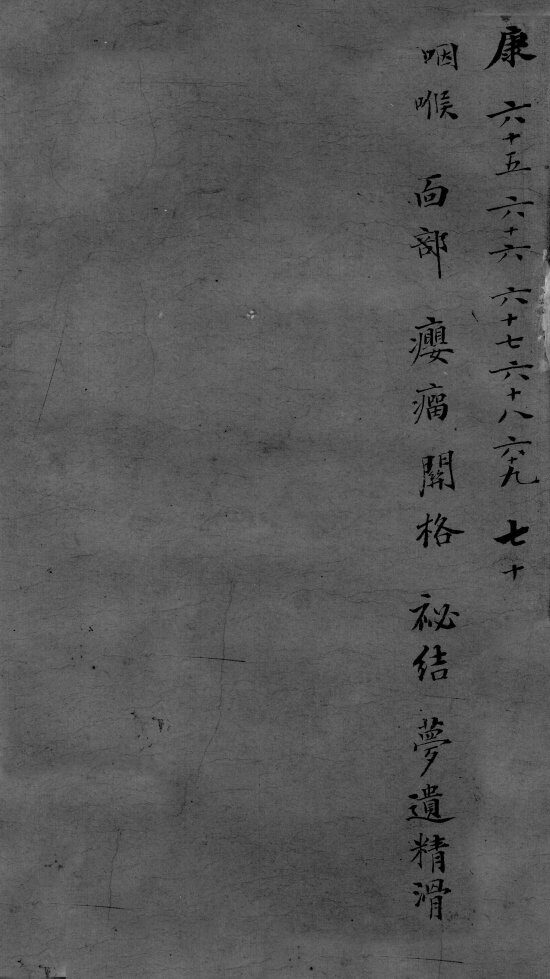 康 六十五 六十六 六十七 六十八 六十九 七十
咽喉 面部 癭瘤 關格 祕結 夢遺精滑